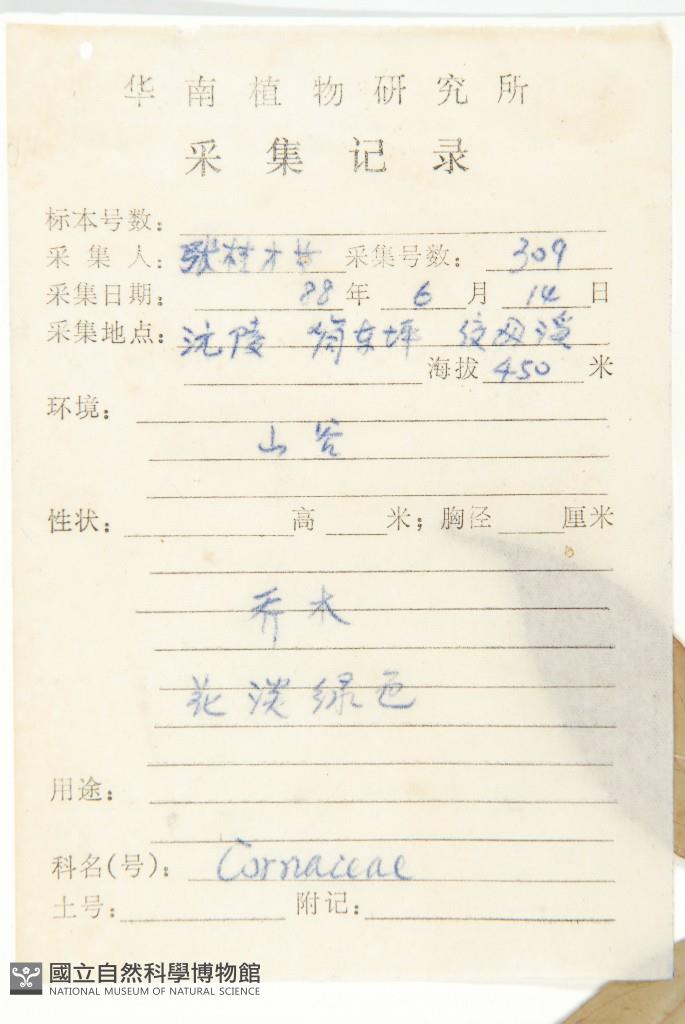 华南植物研究所
采集记录
标本号数:
采集人: 张桂才 采集号数: 309
采集日期: 88年6月14日
采集地点: 沅陵 坪 溪
海拔 450 米
环境:
山谷
性状: 高 米; 胸径 厘米
乔木
花淡绿色
用途:
科名(号): Cornaceae
土号: 附记:
國立自然科學博物館
NATIONAL MUSEUM OF NATURAL SCIENCE